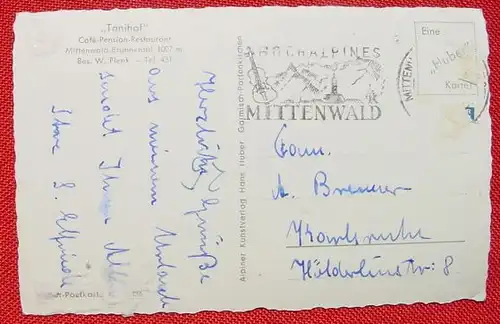 „Tanihof"
Café-Pension-Restaurant
Mittenwald-Brunnental 1007 m
Bes. W. Plenk - Tel. 431
Herzliche Grüße
aus meinem Urlaub
sendet Ihnen Allen
Ihre
Postkarte
Alpiner Kunstverlag Hans Huber Garmisch-Partenkirchen
HOCHALPINES
MITTENWALD
MITTENW
Eine
„Huber"
Karte
Fam.
A. Brenner
Karlsruhe
Hölderlinstr. 8